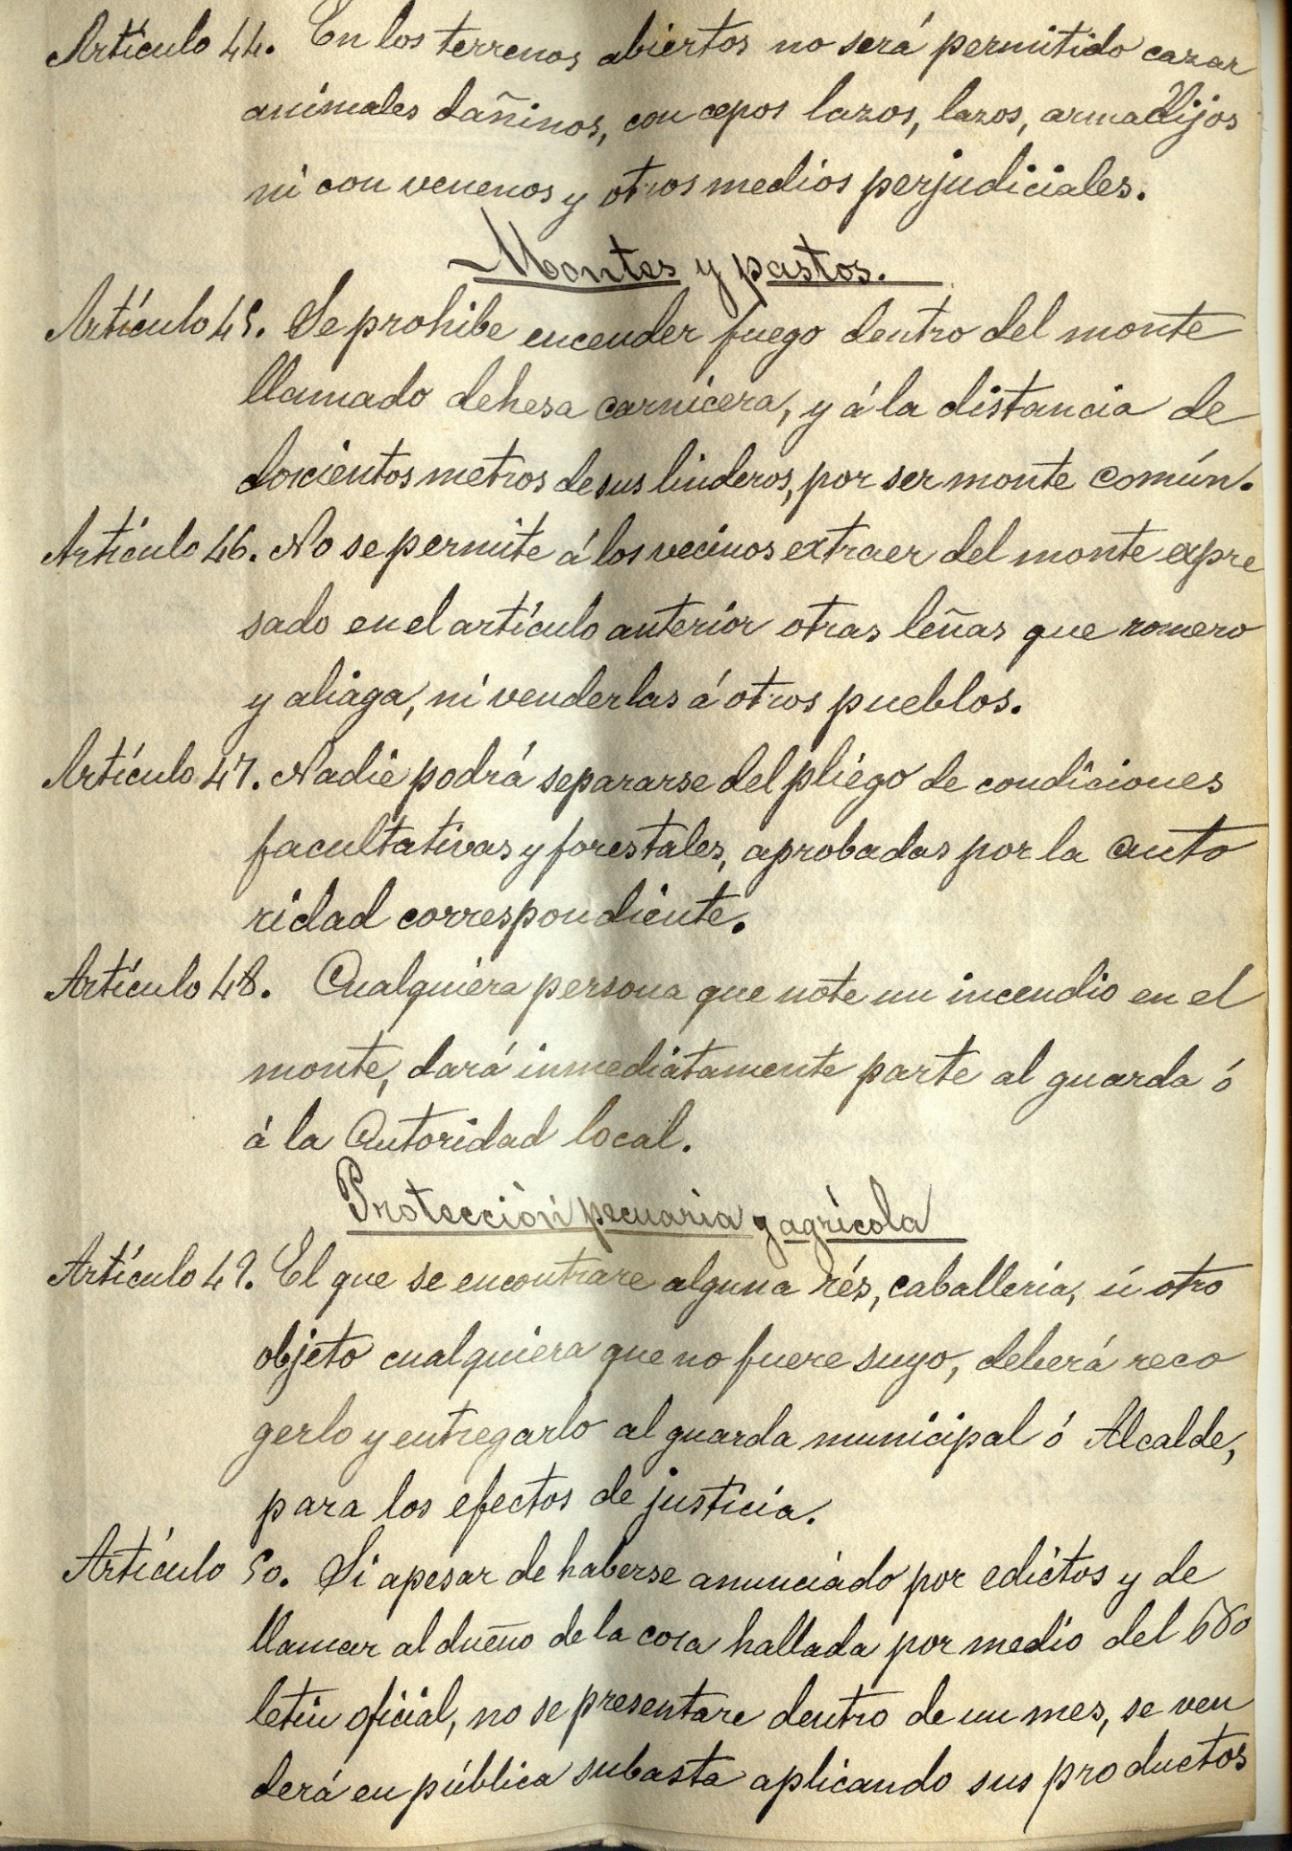 Artículo 44. En los terrenos abiertos no será permitido cazar
animales dañinos, con cepos lazos, lazos, armadijos
ni con venenos y otros medios perjudiciales.
Montes y pastos.
Artículo 45. Se prohibe encender fuego dentro del monte
llamado dehesa carnicera, y á la distancia de
doscientos metros de sus linderos, por ser monte común.
Artículo 46. No se permite á los vecinos extraer del monte expre
sado en el artículo anterior otras leñas que romero
y aliaga, ni venderlas á otros pueblos.
Artículo 47. Nadie podrá separarse del pliego de condiciones
facultativas y forestales, aprobadas por la auto
ridad correspondiente.
Artículo 48. Cualquiera persona que note un incendio en el
monte, dará inmediatamente parte al guarda ó
á la Autoridad local.
Protección pecuaria y agrícola
Artículo 49. El que se encontrare alguna rés, caballería, ú otro
objeto cualquiera que no fuere suyo, deberá reco
gerlo y entregarlo al guarda municipal ó Alcalde,
para los efectos de justicia.
Artículo 50. Si apesar de haberse anunciado por edictos y de
llamar al dueño de la cosa hallada por medio del
letin oficial, no se presentare dentro de un mes, se ven
derá en pública subasta aplicando sus productos